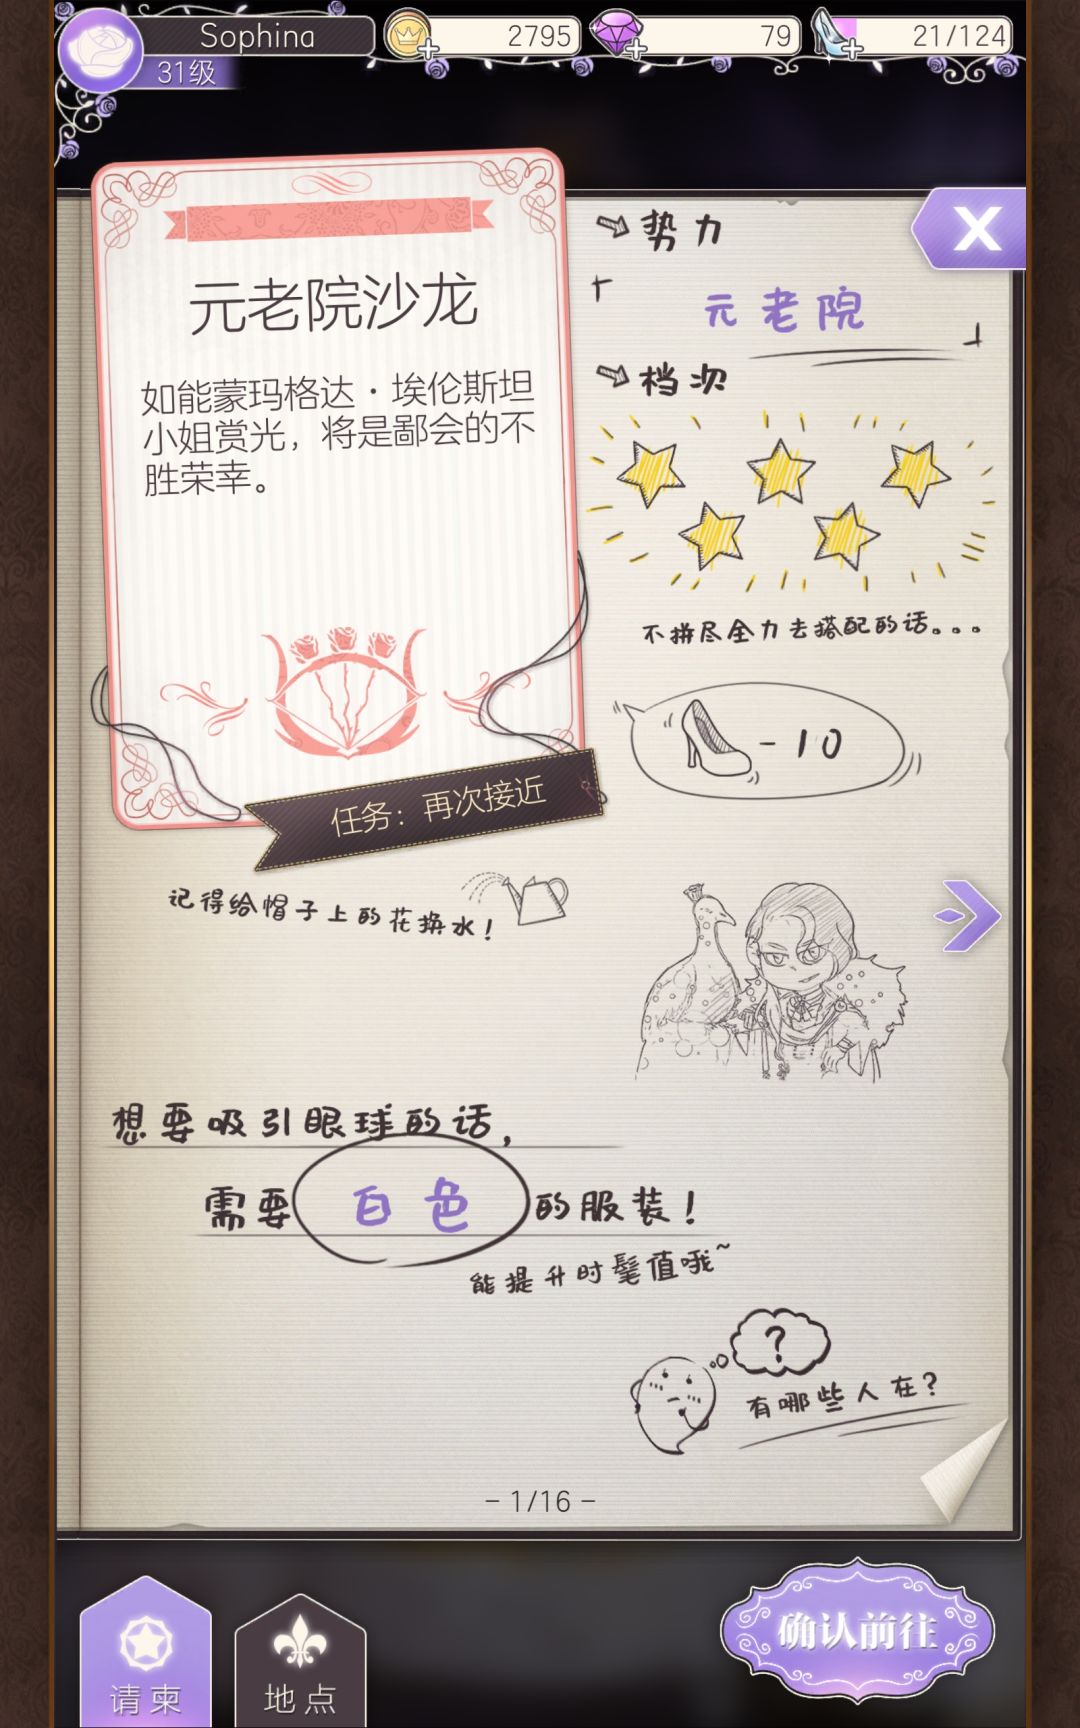 Sophina
2795
79
21/124
31级
元老院沙龙
如能蒙玛格达·埃伦斯坦
小姐赏光，将是鄙会的不
胜荣幸。
任务：再次接近
势力
元老院
档次
不拼尽全力去搭配的话。。。
-10
记得给帽子上的花换水！
想要吸引眼球的话，
需要白色的服装！
能提升时髦值哦~
?
有哪些人在？
- 1/16 -
请柬
地点
确认前往
X